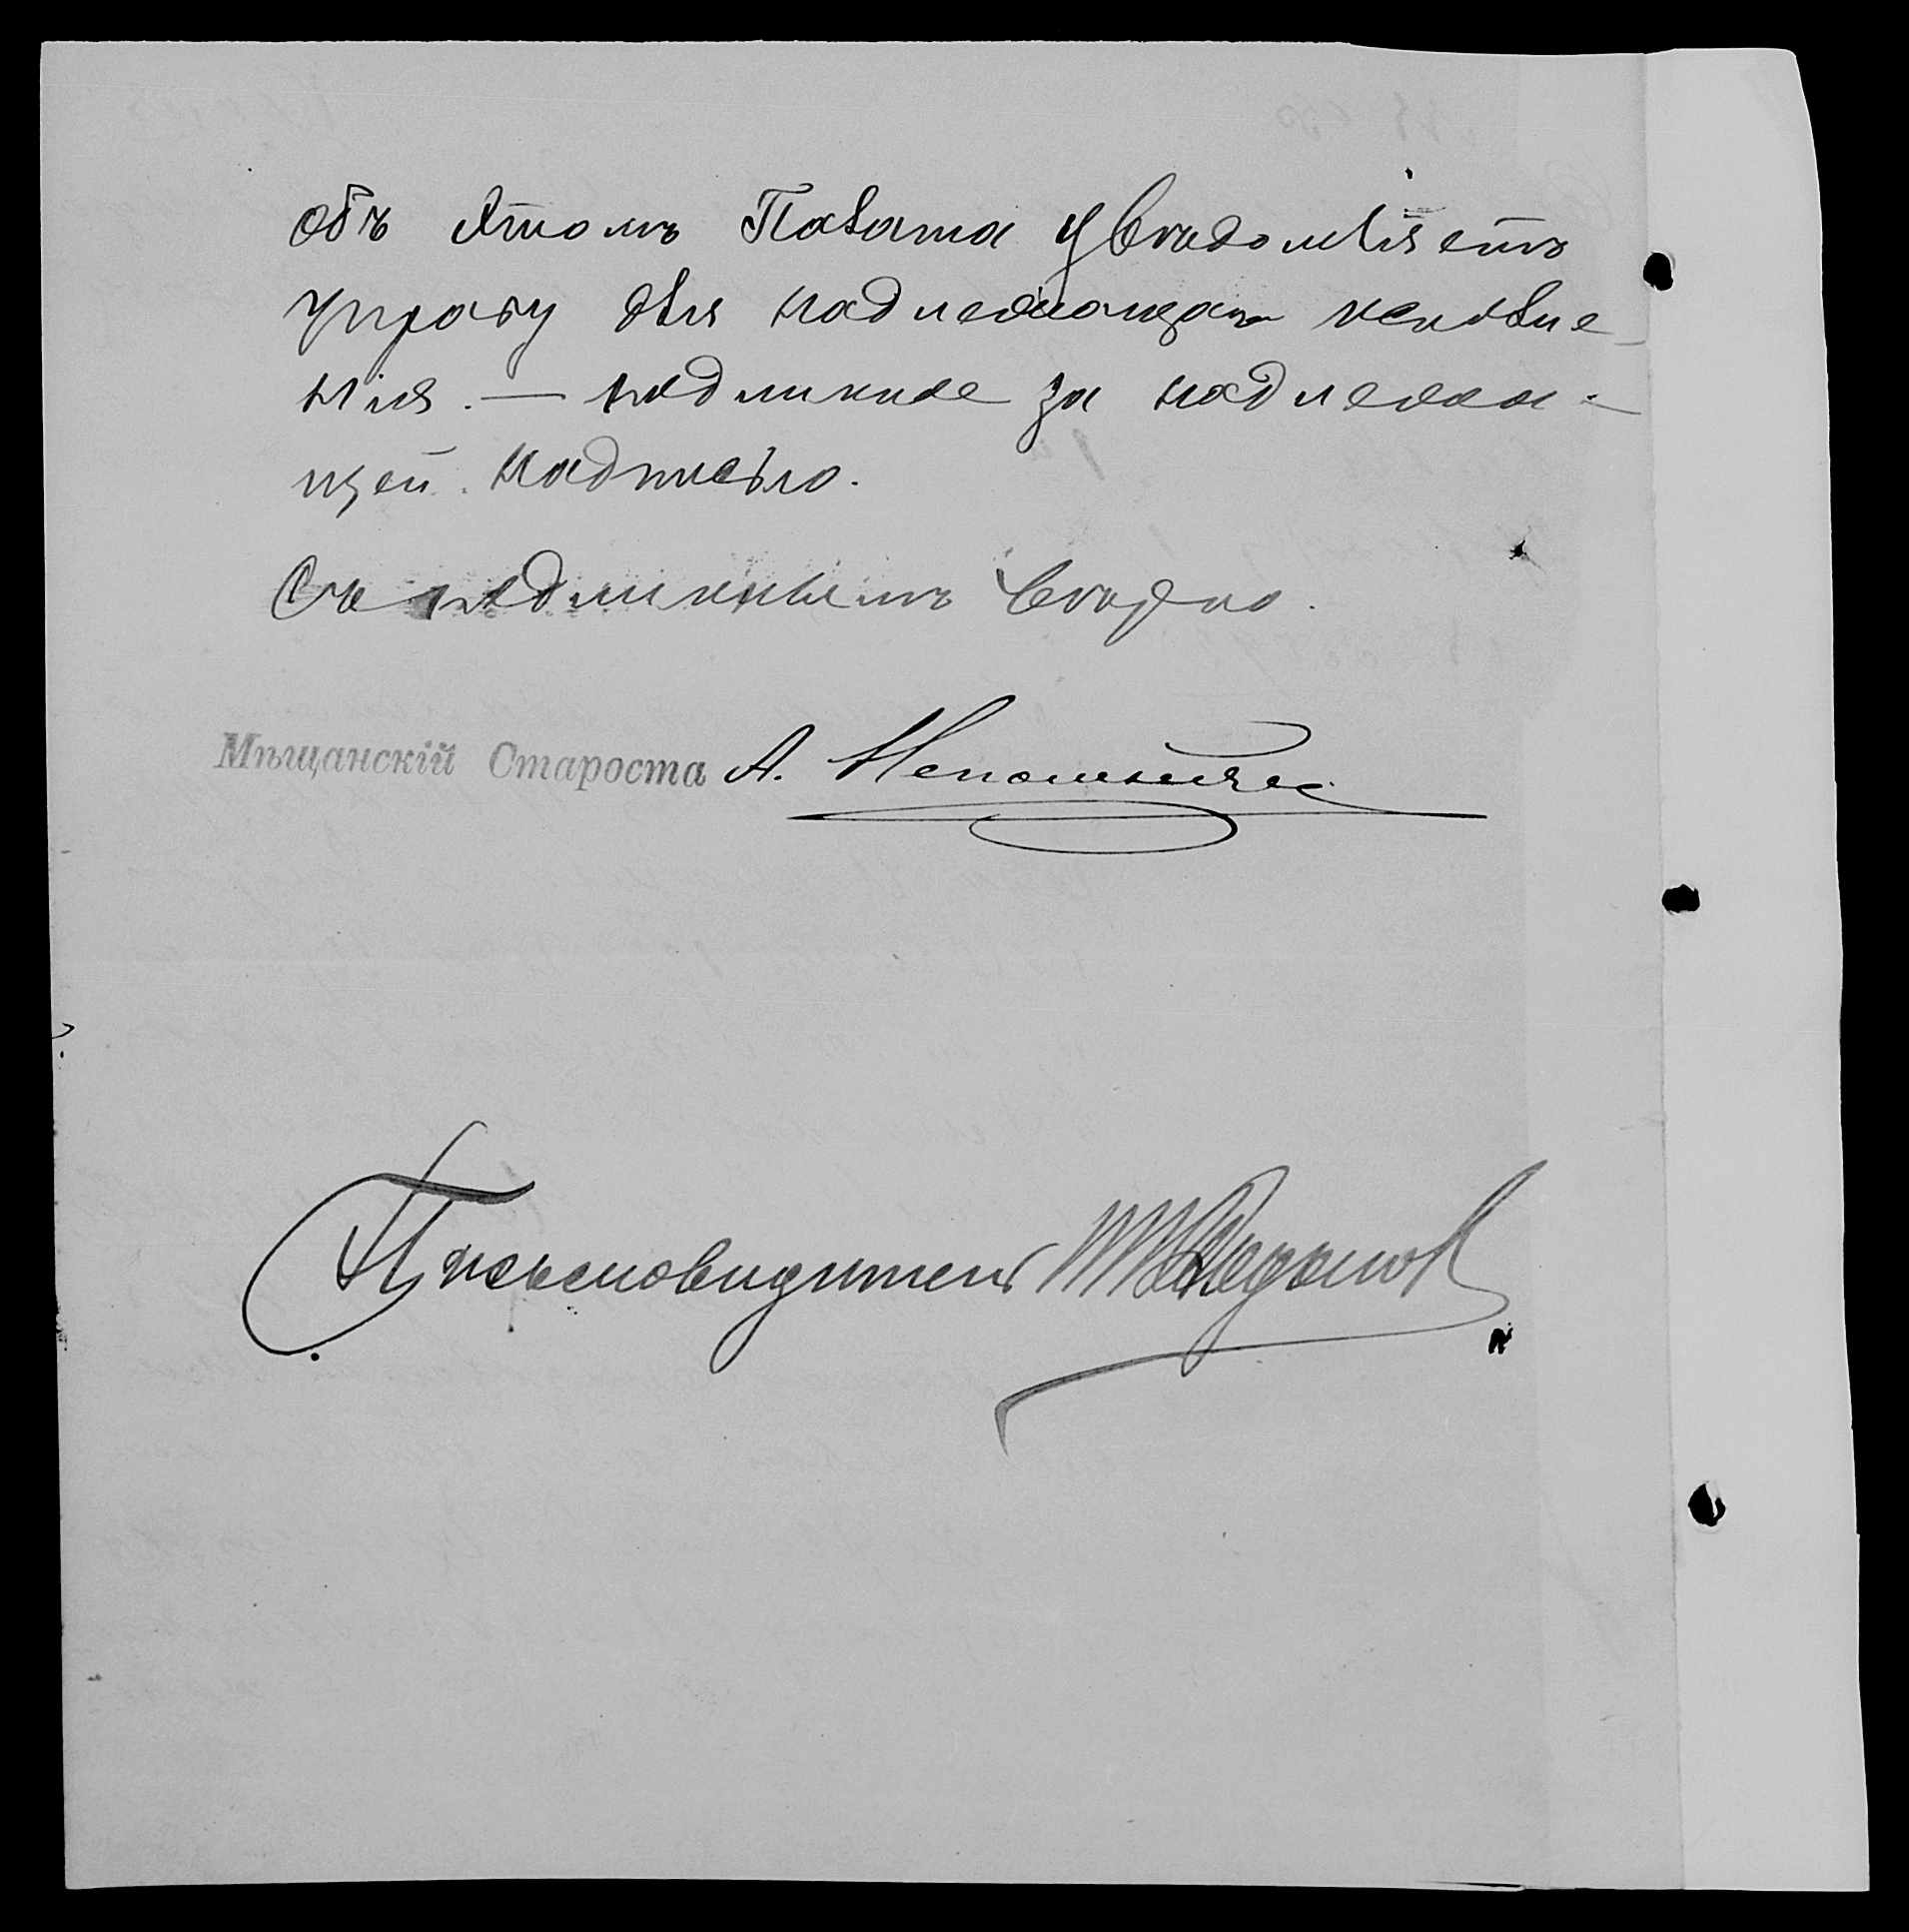 Объ этомъ Палата увѣдомляетъ
управу для надлежащаго исполне-
нія. — подлинное за надлежа-
щей надписью.
Съ подлиннымъ вѣрно.
Мѣщанскій Староста А. Непомнящ
Письмоводитель